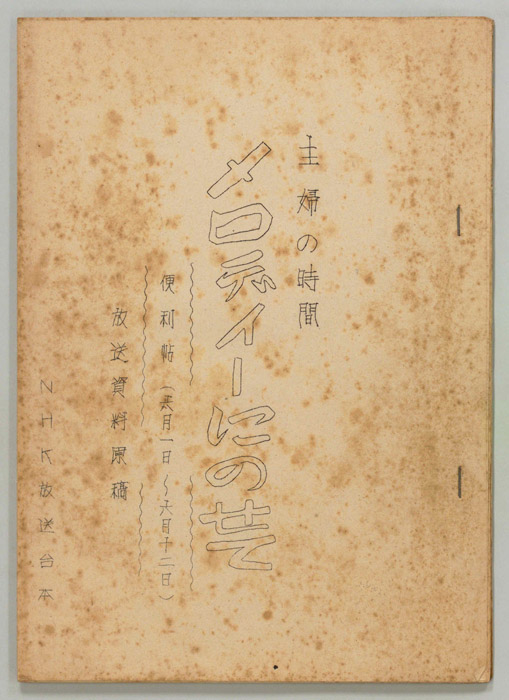 主婦の時間
メロディーにのせて
便利帖(五月一日〜六月十二日)
放送資料原稿
NHK放送台本